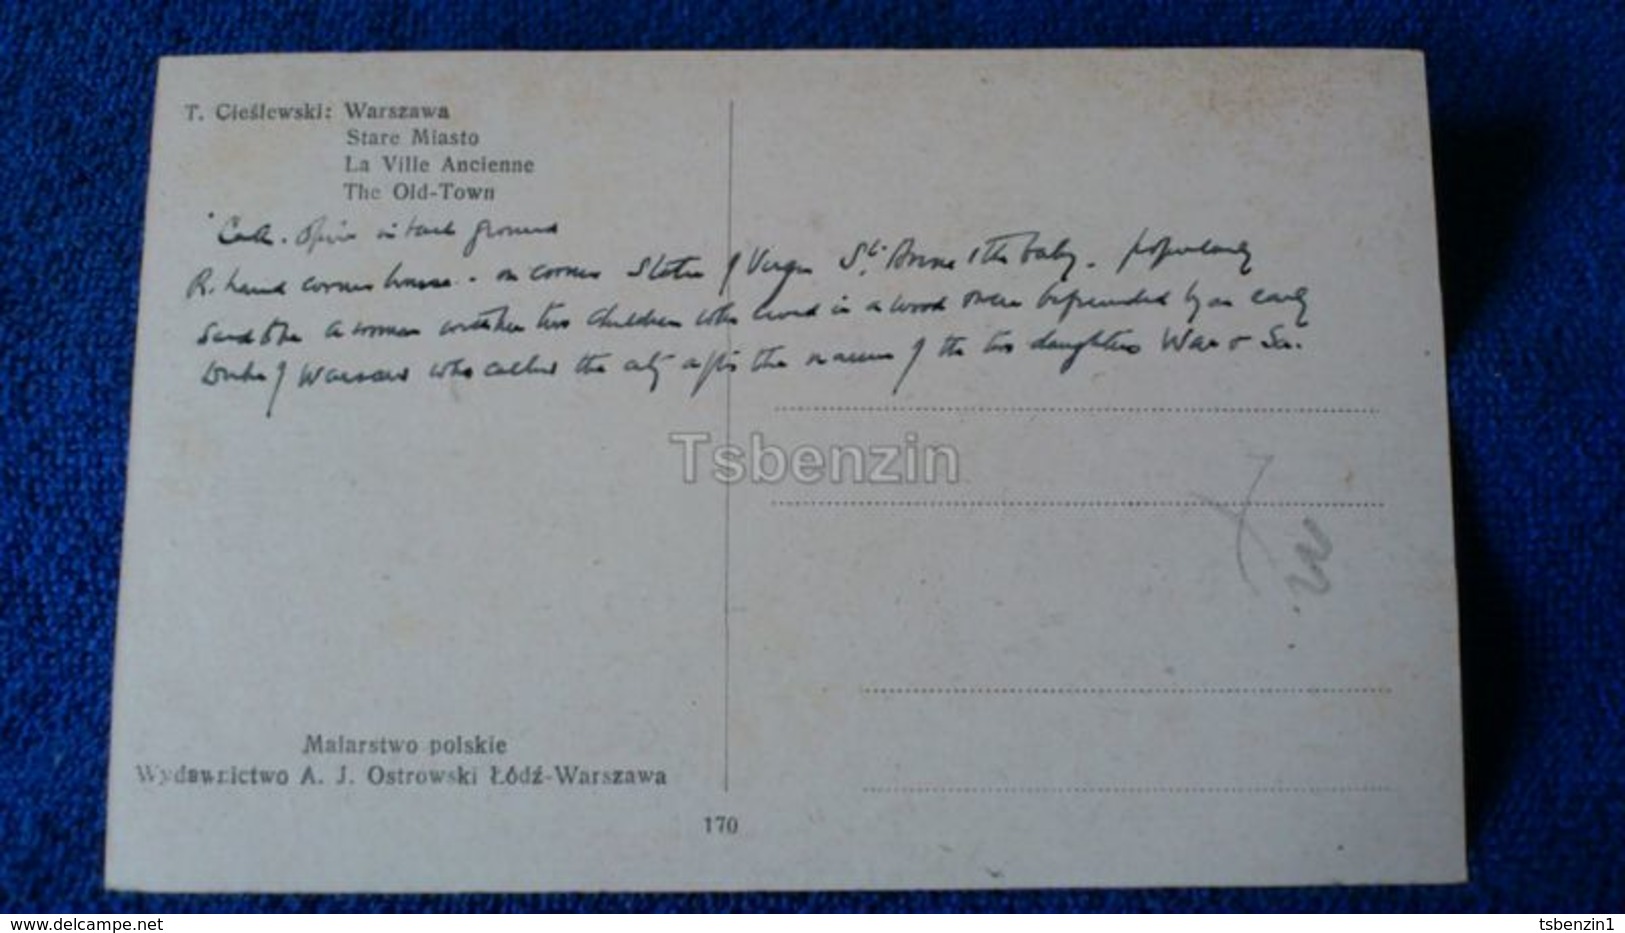 T. Cieślewski: Warszawa
Stare Miasto
La Ville Ancienne
The Old-Town
Cath. Spire in back ground
R. hand corner house - on corner Statue of Virgin St. Anne & the baby. popularly
said to be a woman with her two children who lived in a wood & were befriended by an early
Duke of Warsaw who called the city after the names of the two daughters War & Sa.
Tsbenzin
Malarstwo polskie
Wydawnictwo A. J. Ostrowski Łódź-Warszawa
170
delcampe.net
tsbenzin1